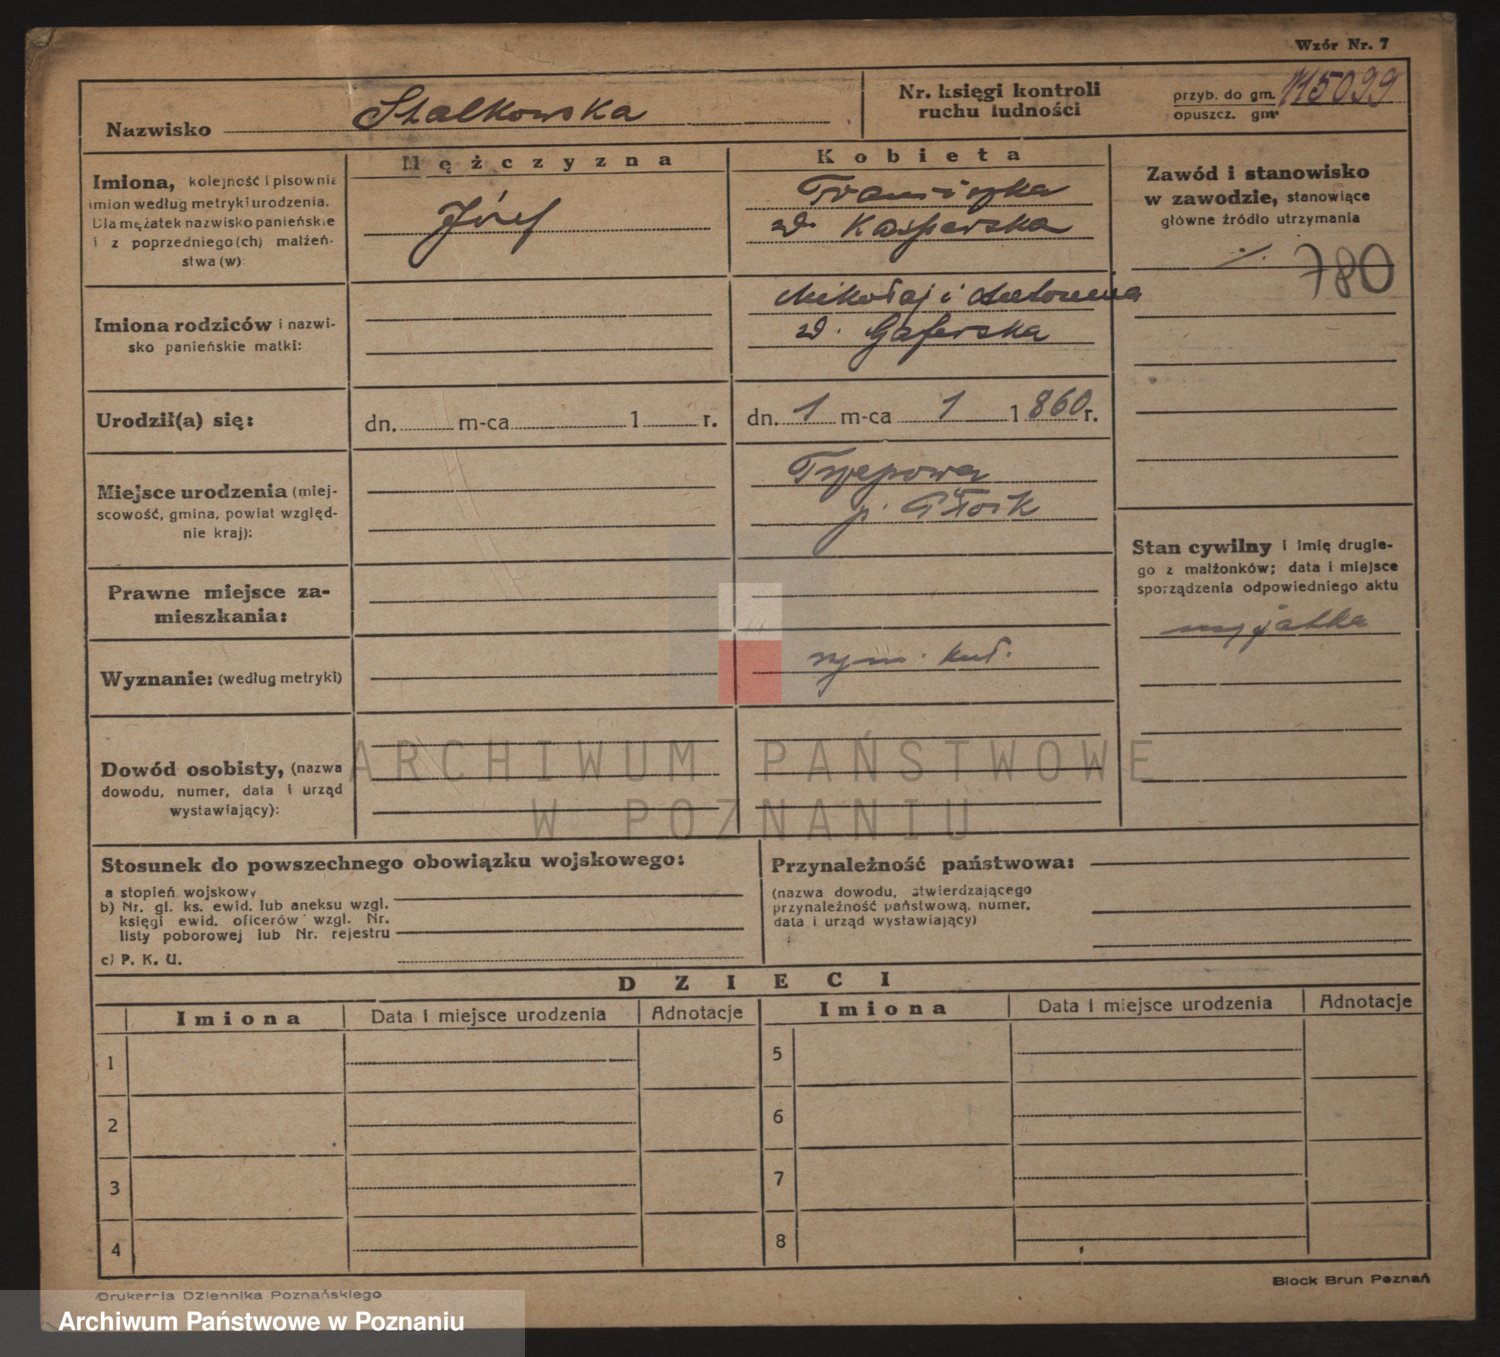 Wzór Nr. 7
Nazwisko Stalkowska
Nr. księgi kontroli
ruchu ludności
przyb. do gm. 115099
opuszcz. gm.
Mężczyzna
Kobieta
Imiona, kolejność i pisownia
imion według metryki urodzenia.
Dla mężatek nazwisko panieńskie
i z poprzedniego(ch) małżeń-
stwa(w):
Józef
Franciszka
z d. Kasperska
Zawód i stanowisko
w zawodzie, stanowiące
główne źródło utrzymania
./.
780
Imiona rodziców i nazwi-
sko panieńskie matki:
Mikołaj i Antonina
z d. Gaferska
Urodził(a) się:
dn. m-ca 1 r.
dn. 1 m-ca 1 1860 r.
Miejsce urodzenia (miej-
scowość, gmina, powiat względ-
nie kraj):
Trzepowa
p. Płock
Stan cywilny i imię drugie-
go z małżonków; data i miejsce
sporządzenia odpowiedniego aktu
mężatka
Prawne miejsce za-
mieszkania:
Wyznanie: (według metryki)
rzym. kat.
Dowód osobisty, (nazwa
dowodu, numer, data i urząd
wystawiający):
ARCHIWUM PAŃSTWOWE
W POZNANIU
Stosunek do powszechnego obowiązku wojskowego:
a stopień wojskowy
b) Nr. gl. ks. ewid. lub aneksu wzgl.
księgi ewid. oficerów wzgl. Nr.
listy poborowej lub Nr. rejestru
c) P. K. U.
Przynależność państwowa:
(nazwa dowodu, stwierdzającego
przynależność państwową, numer,
data i urząd wystawiający)
DZIECI
Imiona Data i miejsce urodzenia Adnotacje Imiona Data i miejsce urodzenia Adnotacje
1 5
2 6
3 7
4 8
Drukarnia Dziennika Poznańskiego
Block Brun Poznań
Archiwum Państwowe w Poznaniu